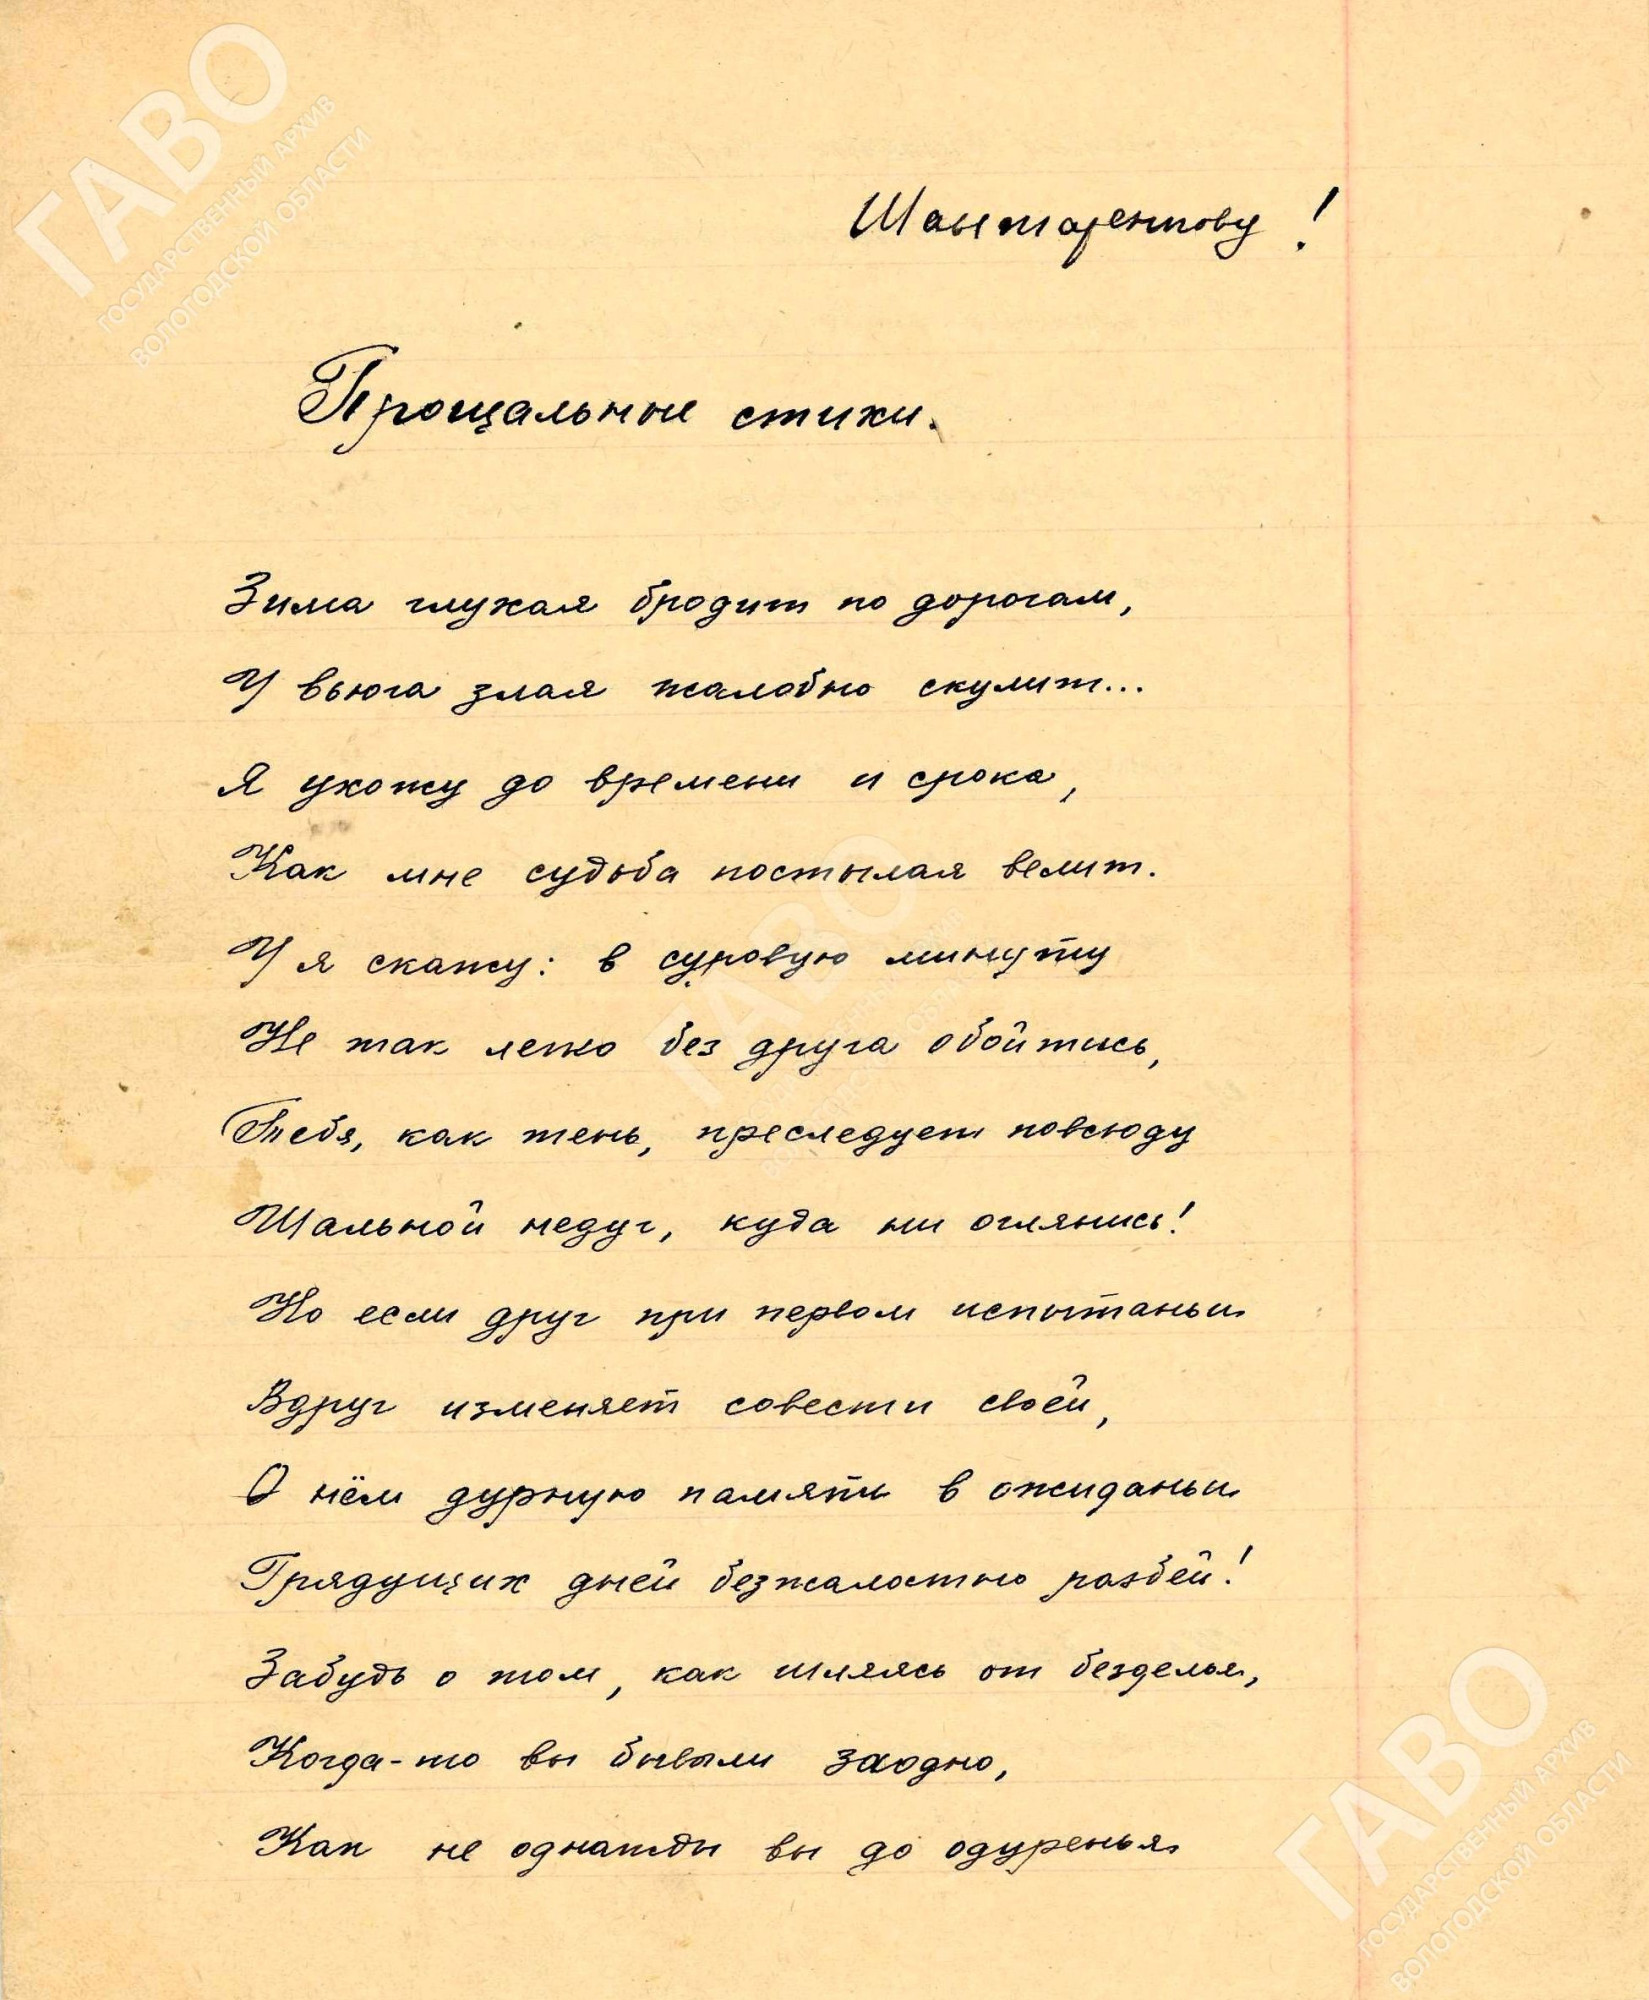 Шантаренкову!
Прощальные стихи.
Зима глухая бродит по дорогам,
И вьюга злая жалобно скулит...
Я ухожу до времени и срока,
Как мне судьба постылая велит.
И я скажу: в суровую минуту
Не так легко без друга обойтись,
Тебя, как тень, преследует повсюду
Шальной недуг, куда ни оглянись!
Но если друг при первом испытаньи
Вдруг изменяет совести своей,
О нём дурную память в ожиданьи
Грядущих дней безжалостно разбей!
Забудь о том, как шляясь от безделья,
Когда-то вы бывали заодно,
Как не однажды вы до одуренья
ГАВО
ГОСУДАРСТВЕННЫЙ АРХИВ
ВОЛОГОДСКОЙ ОБЛАСТИ
ГАВО
ГОСУДАРСТВЕННЫЙ АРХИВ
ВОЛОГОДСКОЙ ОБЛАСТИ
ГАВО
ГОСУДАРСТВЕННЫЙ АРХИВ
ВОЛОГОДСКОЙ ОБЛАСТИ